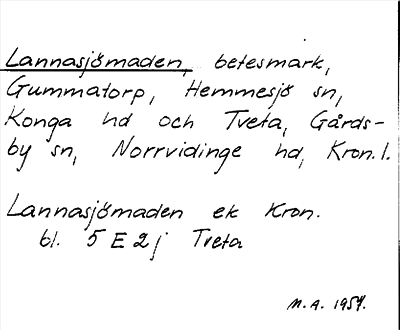 Lannasjömaden, betesmark,
Gummatorp, Hemmesjö sn,
Konga hd och Tveta, Gårds-
by sn, Norrvidinge hd, Kron. l.
Lannasjömaden ek Kron.
bl. 5 E 2 j Tveta
M. A. 1954.